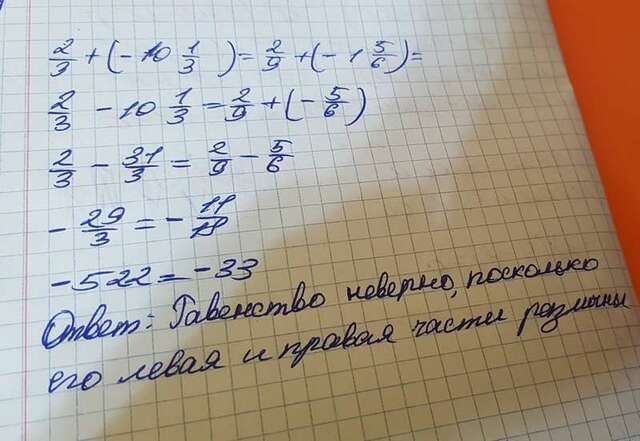 2/3 + (- 10 1/3) = 2/9 + (- 1 5/6) =
2/3 - 10 1/3 = 2/9 + (- 5/6)
2/3 - 31/3 = 2/9 - 5/6
- 29/3 = - 11/18
- 522 = - 33
Ответ: Равенство неверно, посколько
его левая и правая части различны